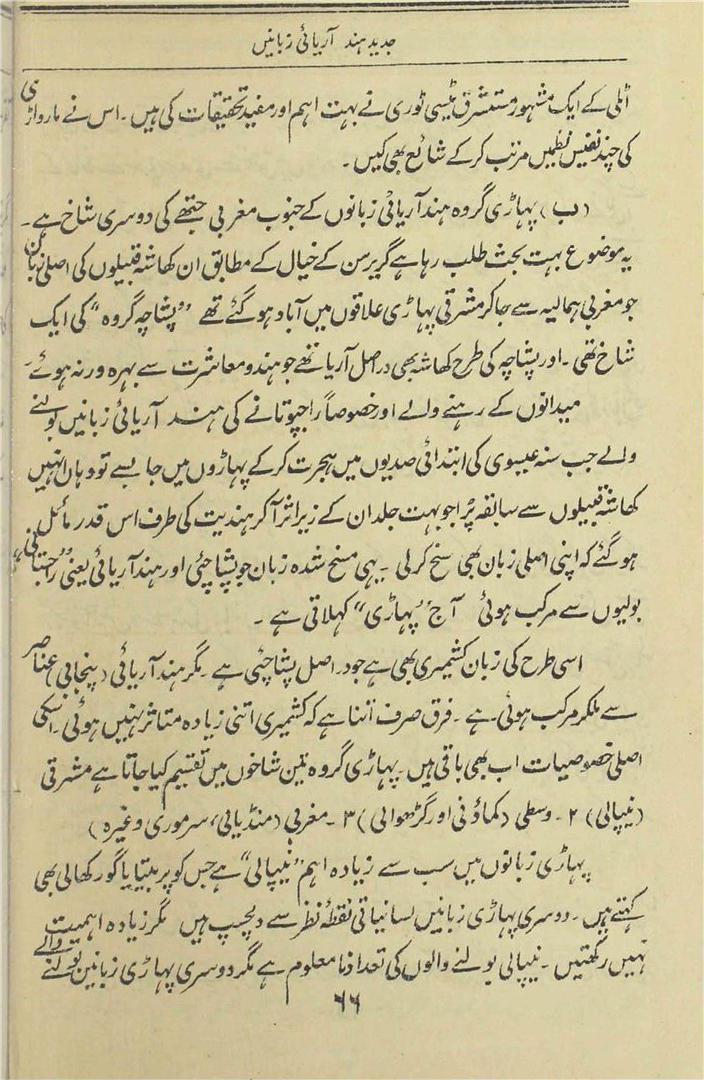 جدید ہند آریائی زبانیں
اٹلی کے ایک مشہور مستشرق ٹیسی ٹوری نے بہت اہم اور مفید تحقیقات کی ہیں۔ اس نے مارواڑی
کی چند نفیس نظمیں مرتب کر کے شائع بھی کیں۔
(ب) پہاڑی گروہ ہند آریائی زبانوں کے جنوب مغربی جتھے کی دوسری شاخ ہے۔
یہ موضوع بہت بحث طلب رہا ہے گریرسن کے خیال کے مطابق ان کھاشہ قبیلوں کی اصلی زبان
جو مغربی ہمالیہ سے جا کر مشرقی پہاڑی علاقوں میں آباد ہو گئے تھے ”پشاچہ گروہ“ کی ایک
شاخ تھی۔ اور پشاچہ کی طرح کھاشہ بھی دراصل آریا تھے جو ہندو معاشرت سے بہرہ ور نہ ہوئے۔
میدانوں کے رہنے والے اور خصوصاً راجپوتانے کی ہند آریائی زبانیں بولنے
والے جب سنہ عیسوی کی ابتدائی صدیوں میں ہجرت کر کے پہاڑوں میں جا بسے تو وہاں انہیں
کھاشہ قبیلوں سے سابقہ پڑا جو بہت جلد ان کے زیر اثر آ کر ہندیت کی طرف اس قدر مائل
ہو گئے کہ اپنی اصلی زبان بھی مسخ کر لی۔ یہی مسخ شدہ زبان جو پشاچئی اور ہند آریائی یعنی ”راجستانی“
بولیوں سے مرکب ہوئی آج ”پہاڑی“ کہلاتی ہے۔
اسی طرح کی زبان کشمیری بھی ہے جو دراصل پشاچئی ہے۔ مگر ہند آریائی (پنجابی) عناصر
سے ملکر مرکب ہوئی ہے۔ فرق صرف اتنا ہے کہ کشمیری اتنی زیادہ متاثر نہیں ہوئی۔ اسکی
اصلی خصوصیات اب بھی باقی ہیں۔ پہاڑی گروہ تین شاخوں میں تقسیم کیا جاتا ہے مشرقی
(نیپالی) ۲۔ وسطی (کماؤنی اور گڑھوالی) ۳۔ مغربی (منڈیالی، سرموری وغیرہ)
پہاڑی زبانوں میں سب سے زیادہ اہم ”نیپالی“ ہے جس کو پربتیا یا گورکھالی بھی
کہتے ہیں۔ دوسری پہاڑی زبانیں لسانیاتی نقطۂ نظر سے دلچسپ ہیں مگر زیادہ اہمیت
نہیں رکھتیں۔ نیپالی بولنے والوں کی تعداد نامعلوم ہے مگر دوسری پہاڑی زبانیں بولنے والے
۶۶